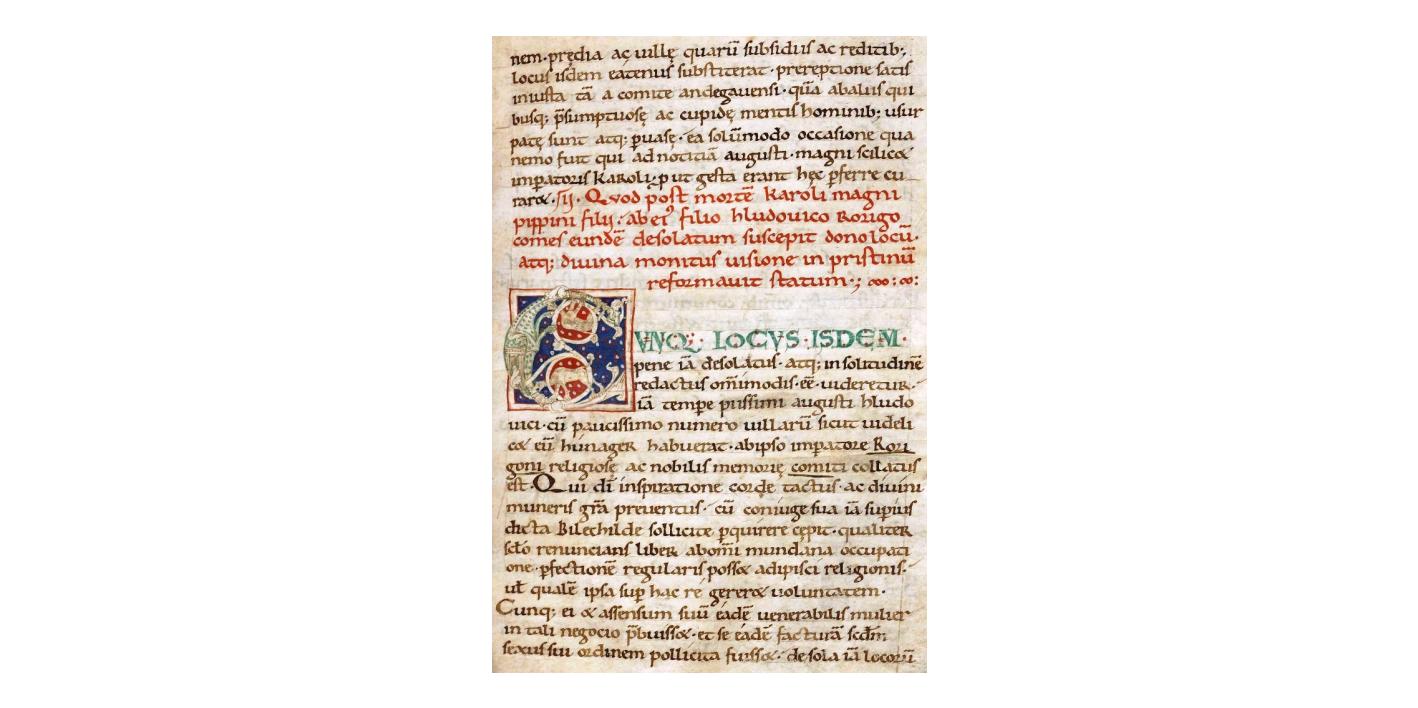 nem·prędia ac uillę quarū subsidiis ac reditib;,
locus isdem eatenus substiterat·prereptione satis
iniusta tā a comite andegauensi·quā abaliis qui
busq; p̄sumptuosę ac cupidę mentis hominib; usur
patę sunt atq; puasę·ea solūmodo occasione qua
nemo fuit qui ad noticiā augusti·magni scilicet
imperatoris Karoli·put gesta erant hęc pferre cu
raret. Quod post mortē karoli magni
pippini filii: ab ei' filio hludouico Rorigo
comes eundē desolatum suscepit dono locū·
atq; diuina monitus uisione in pristinū
reformauit statum·;
CUNQ; LOCVS·ISDEM·
pene iā desolatus·atq; in solitudinē
redactus om̄imodis·eē·uideretur·
iā tempe piissimi augusti hludo
uici·cū paucissimo numero uillarū sicut uideli
cet eū hunager habuerat·abipso impatore Rori
goni religiosę ac nobilis memorię comiti collatus
est·Qui dī inspiratione corde tactus·ac diuini
muneris grā preuentus·cū coniuge sua iā superius
dicta Bilechilde sollicite pquirere cępit·qualiter
sclō renuncians liber abom̄i mundana occupati
one·pfectionē regularis posset adipisci religionis·
ut qualē ipsa sup hac re gereret uoluntatem·
Cunq; ei et assensum suū eadē uenerabilis mulier
in tali negocio p̄buisset·et se eadē facturā scdm
sexus sui ordinem pollicita fuisset·desola iā locorū